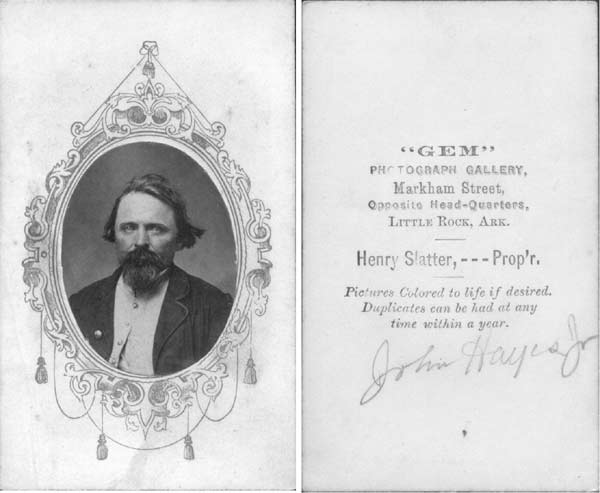 "GEM"
PHOTOGRAPH GALLERY,
Markham Street,
Opposite Head-Quarters,
LITTLE ROCK, ARK.
Henry Slatter, --- Prop'r.
Pictures Colored to life if desired.
Duplicates can be had at any
time within a year.
John Hayes Jr